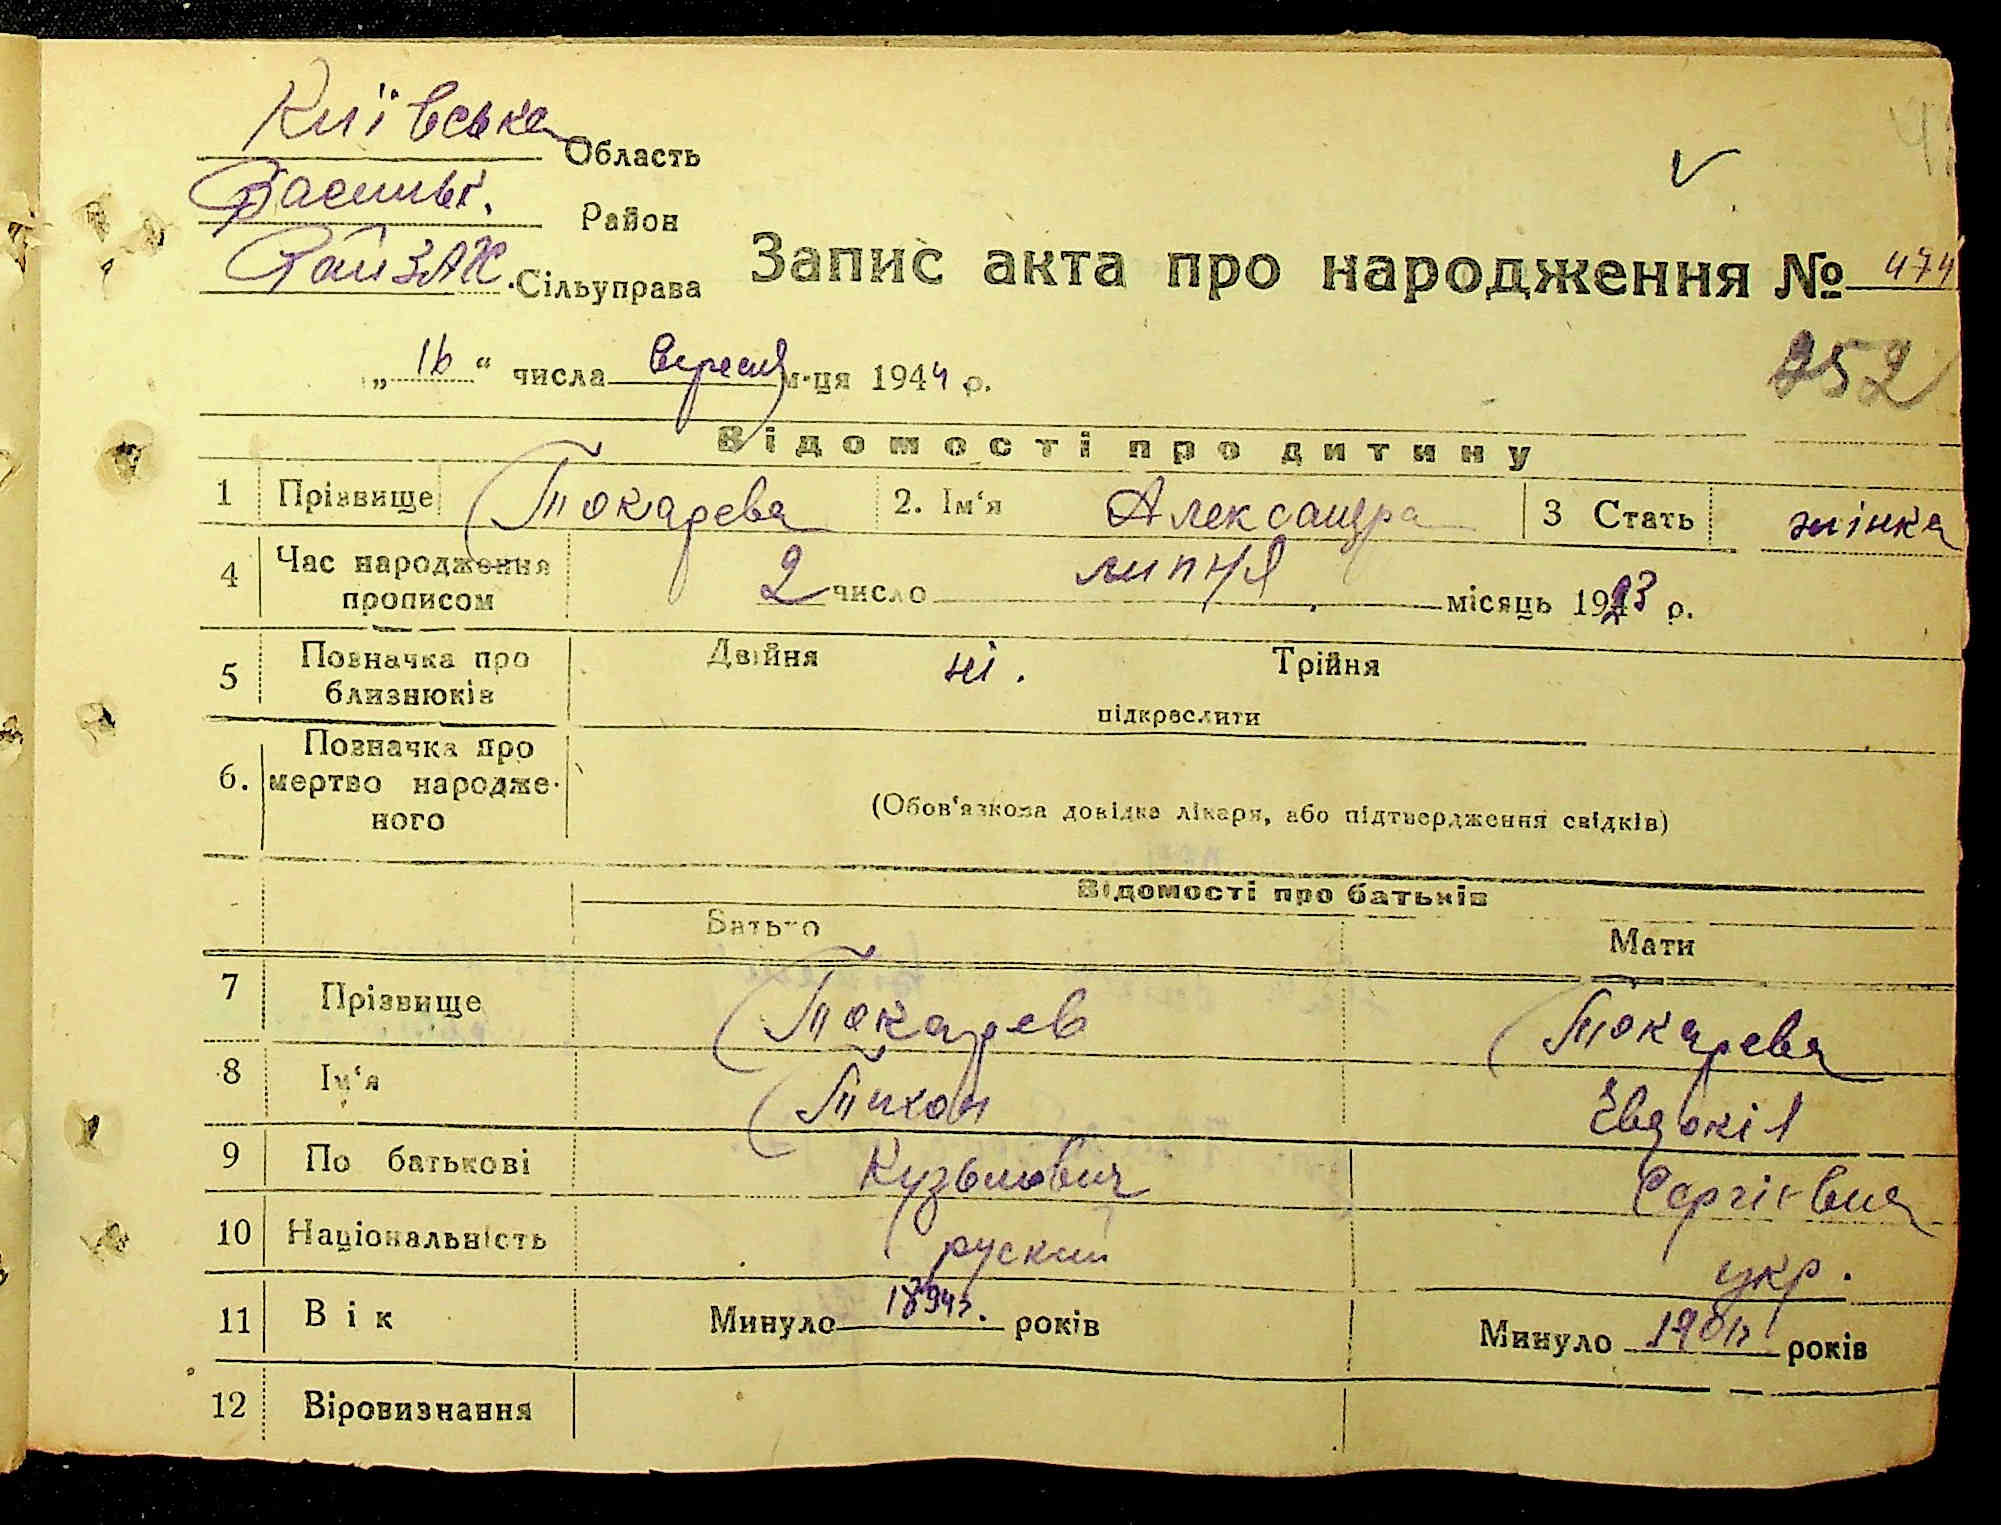 Київська Область
Васильк. Район
РайЗАЖ. Сільуправа
Запис акта про народження № 474
„16“ числа Вересня м-ця 1944 р.
252
Відомості про дитину
1 Прізвище Токарева 2. Ім‘я Александра 3 Стать жінка
4 Час народження прописом 2 число липня місяць 1923 р.
5 Позначка про близнюків Двійня ні. Трійня
підкреслити
6. Позначка про мертво народже-
ного
(Обов‘язкова довідка лікаря, або підтвердження свідків)
Відомості про батьків
Батько Мати
7 Прізвище Токарев Токарева
8 Ім‘я Тихон Євдокія
9 По батькові Кузьмович Сергієвна
10 Національність руский укр.
11 Вік Минуло 1894г. років Минуло 1901г років
12 Віровизнання